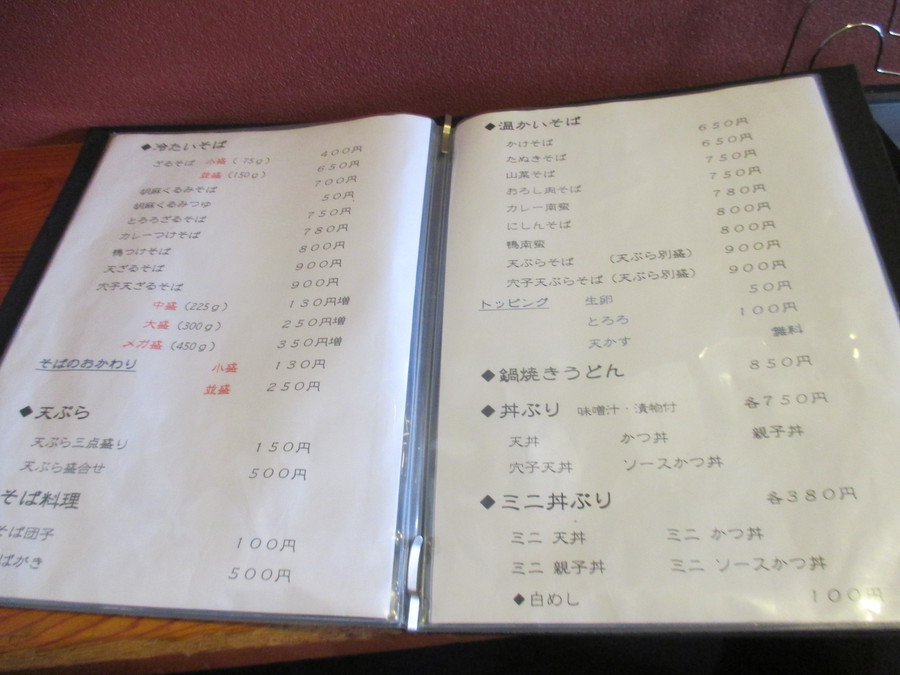 ◆冷たいそば
ざるそば 小盛（75g） 400円
並盛（150g） 650円
胡麻くるみそば 700円
胡麻くるみつゆ 50円
とろろざるそば 750円
カレーつけそば 780円
鴨つけそば 800円
天ざるそば 900円
穴子天ざるそば 900円
中盛（225g） 130円増
大盛（300g） 250円増
メガ盛（450g） 350円増
そばのおかわり 小盛 130円
並盛 250円
◆天ぷら
天ぷら三点盛り 150円
天ぷら盛合せ 500円
そば料理
そば団子 100円
ばがき 500円
◆温かいそば
かけそば 650円
たぬきそば 650円
山菜そば 750円
おろし肉そば 750円
カレー南蛮 780円
にしんそば 800円
鴨南蛮 800円
天ぷらそば （天ぷら別盛） 900円
穴子天ぷらそば（天ぷら別盛） 900円
トッピング 生卵 50円
とろろ 100円
天かす 無料
◆鍋焼きうどん 850円
◆丼ぶり 味噌汁・漬物付 各750円
天丼 かつ丼 親子丼
穴子天丼 ソースかつ丼
◆ミニ丼ぶり 各380円
ミニ 天丼 ミニ かつ丼
ミニ 親子丼 ミニ ソースかつ丼
◆白めし 100円